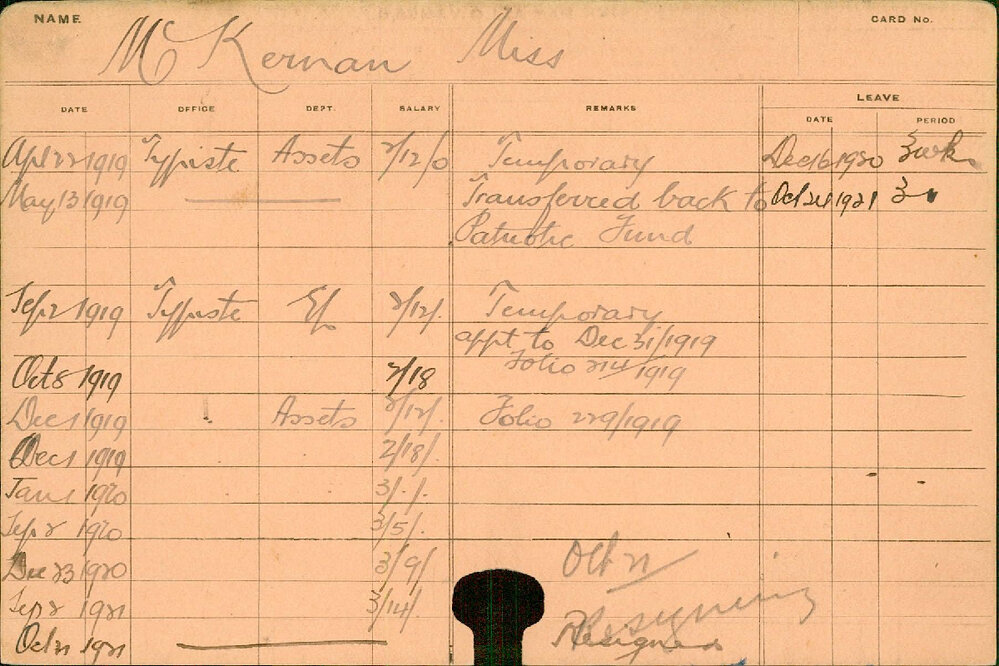 NAME CARD No.
McKernan Miss
DATE OFFICE DEPT. SALARY REMARKS LEAVE
DATE PERIOD
Apl 22 1919 Typiste Assets 2/12/0 Temporary Dec 16 1920 3 wks
May 13 1919 Transferred back to Oct 24 1921 3 "
Patriotic Fund
Sep 2 1919 Typiste Ex 2/12/. Temporary
appt to Dec 31/1919
Folio 214/1919
Oct 8 1919 2/18
Dec 1 1919 Assets 2/12/. Folio 229/1919
Dec 1 1919 2/18/.
Jan 1 1920 3/./.
Sep 2 1920 3/5/.
Dec 23 1920 3/9/
Oct 21
Sep 2 1921 3/14/.
Resigning
Oct 21 1921 Resigned